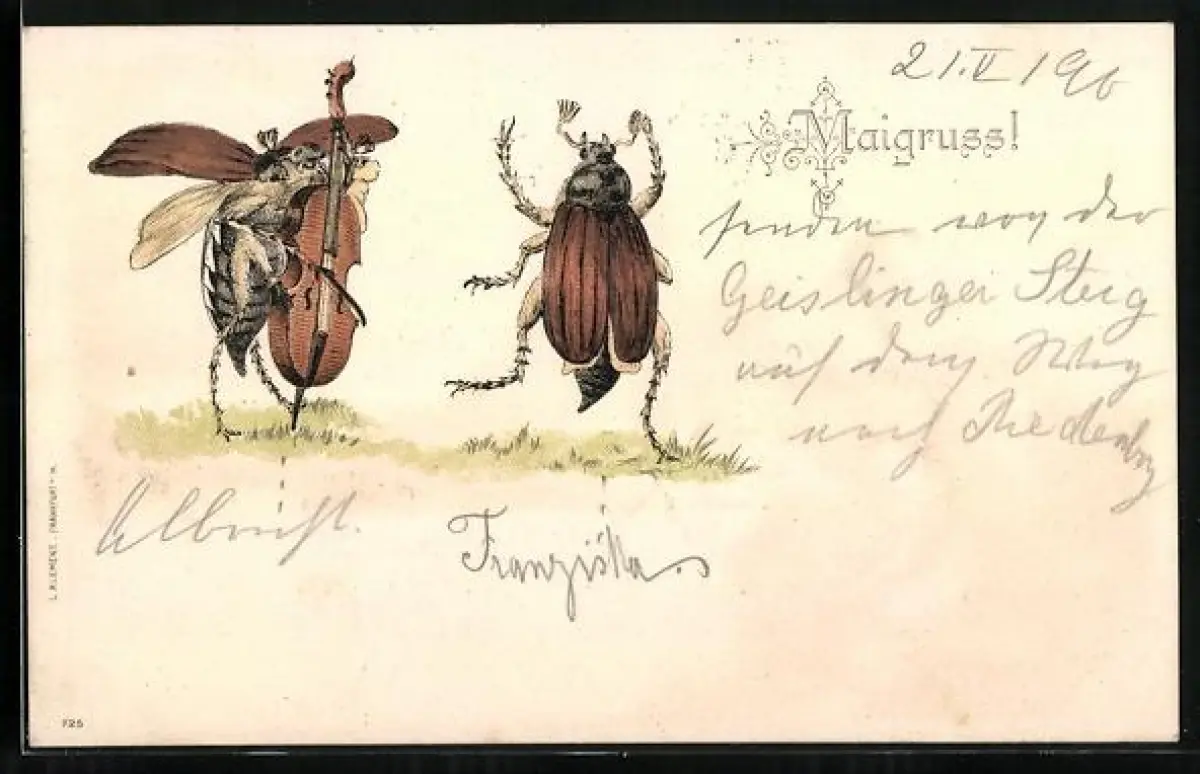 21.V 196
Maigruss!
senden von der
Geislinger Steig
auf dem Weg
nach
Albrecht.
Franziska.
L. KLEMENT, FRANKFURT a. M.
725